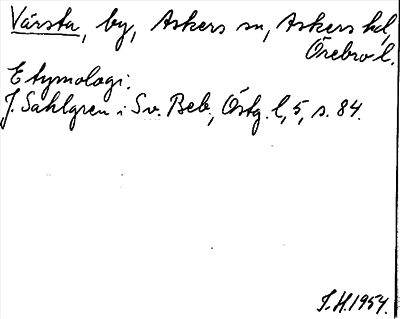 Värsta, by, Askers sn, Askers hd,
Örebro l.
Etymologi:
J. Sahlgren i Sv. Beb., Östg. l, 5, s. 84.
I. H. 1954.